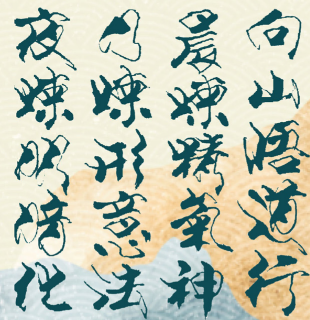 向山悟道行
晨練精氣神
日練形意法
夜練明暗化